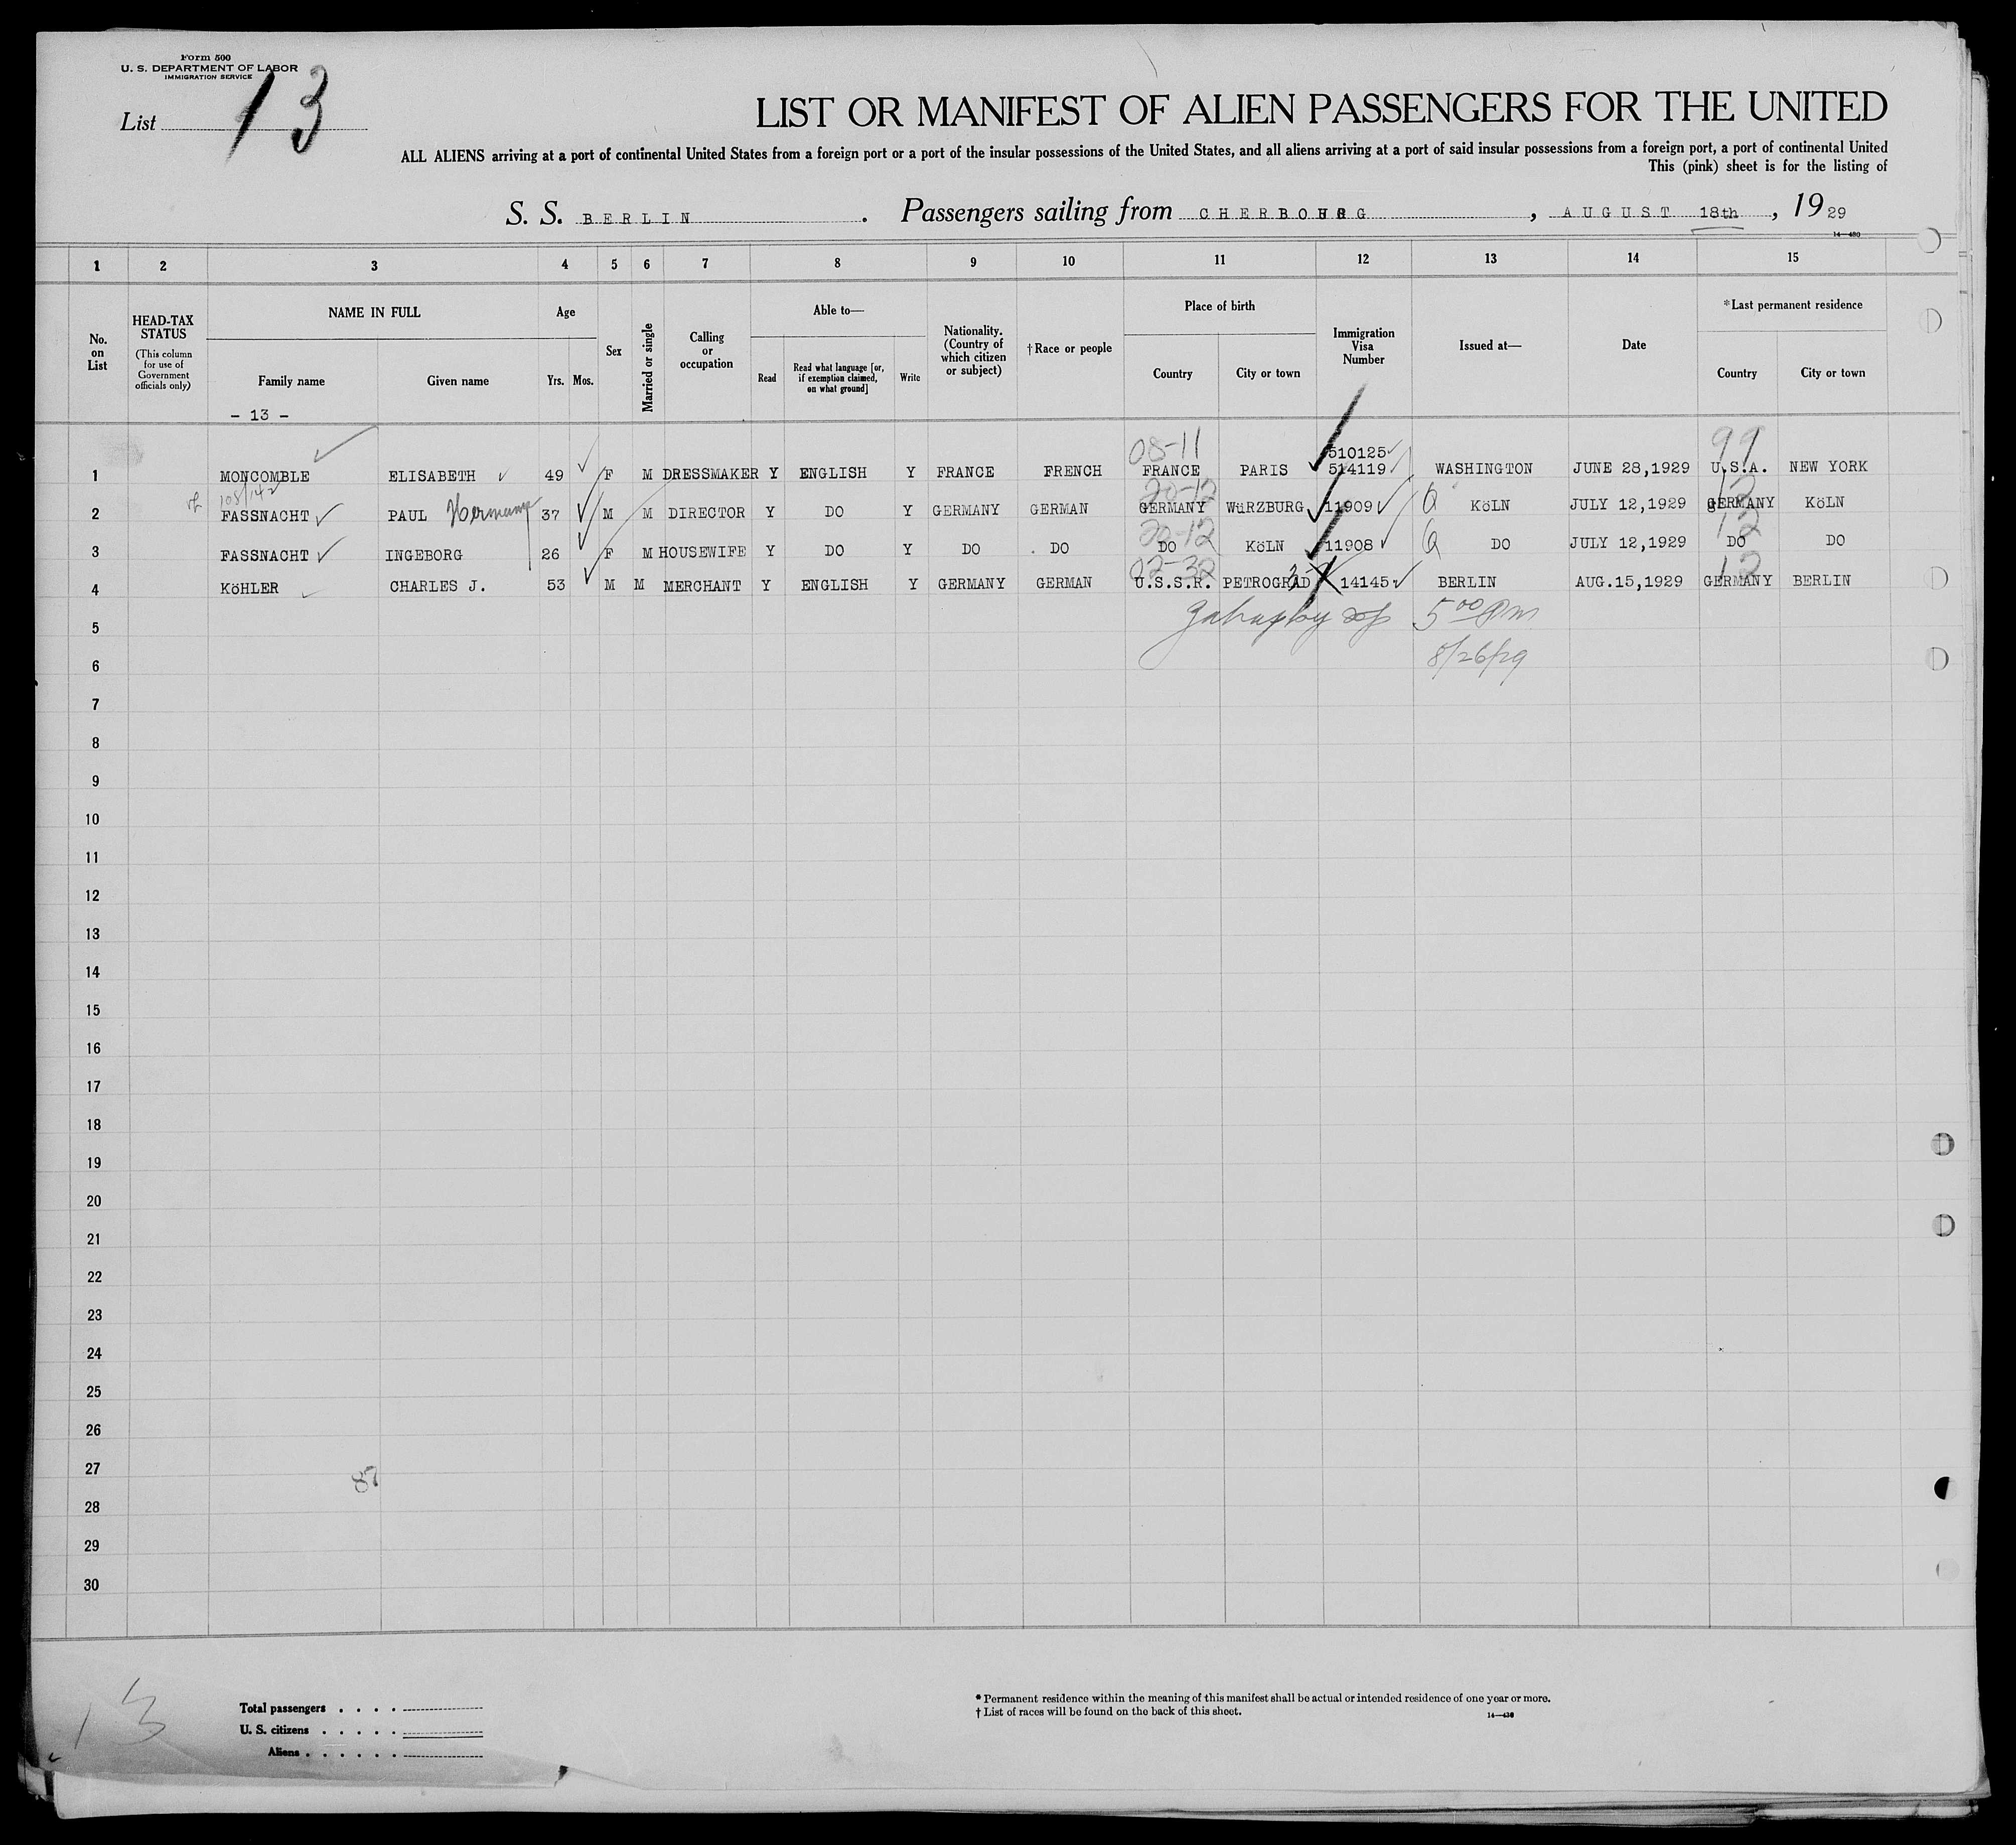 Form 500
U. S. DEPARTMENT OF LABOR
IMMIGRATION SERVICE
List 13
LIST OR MANIFEST OF ALIEN PASSENGERS FOR THE UNITED
ALL ALIENS arriving at a port of continental United States from a foreign port or a port of the insular possessions of the United States, and all aliens arriving at a port of said insular possessions from a foreign port, a port of continental United
This (pink) sheet is for the listing of
S. S. BERLIN. Passengers sailing from CHERBOURG, AUGUST 18th, 1929
14—430
1 2 3 4 5 6 7 8 9 10 11 12 13 14 15
No. on List
HEAD-TAX STATUS
(This column for use of Government officials only)
NAME IN FULL
Family name
Given name
Age
Yrs. Mos.
Sex
Married or single
Calling or occupation
Able to—
Read
Read what language [or, if exemption claimed, on what ground]
Write
Nationality. (Country of which citizen or subject)
†Race or people
Place of birth
Country
City or town
Immigration Visa Number
Issued at—
Date
*Last permanent residence
Country
City or town
- 13 -
08-11 510125 99
1 MONCOMBLE ELISABETH 49 F M DRESSMAKER Y ENGLISH Y FRANCE FRENCH FRANCE PARIS 514119 WASHINGTON JUNE 28,1929 U.S.A. NEW YORK
108/142 20-12 12
2 FASSNACHT PAUL Hermann 37 M M DIRECTOR Y DO Y GERMANY GERMAN GERMANY WüRZBURG 11909 Q KöLN JULY 12,1929 GERMANY KöLN
20-12 12
3 FASSNACHT INGEBORG 26 F M HOUSEWIFE Y DO Y DO DO DO KöLN 11908 Q DO JULY 12,1929 DO DO
02-32 12
4 KöHLER CHARLES J. 53 M M MERCHANT Y ENGLISH Y GERMANY GERMAN U.S.S.R. PETROGRAD 14145 BERLIN AUG.15,1929 GERMANY BERLIN
5 5 00 Pm
6 8/26/29
7
8
9
10
11
12
13
14
15
16
17
18
19
20
21
22
23
24
25
26
27 87
28
29
30
13
Total passengers . . . .
U. S. citizens . . . . .
Aliens . . . . . .
* Permanent residence within the meaning of this manifest shall be actual or intended residence of one year or more.
† List of races will be found on the back of this sheet.
14—430